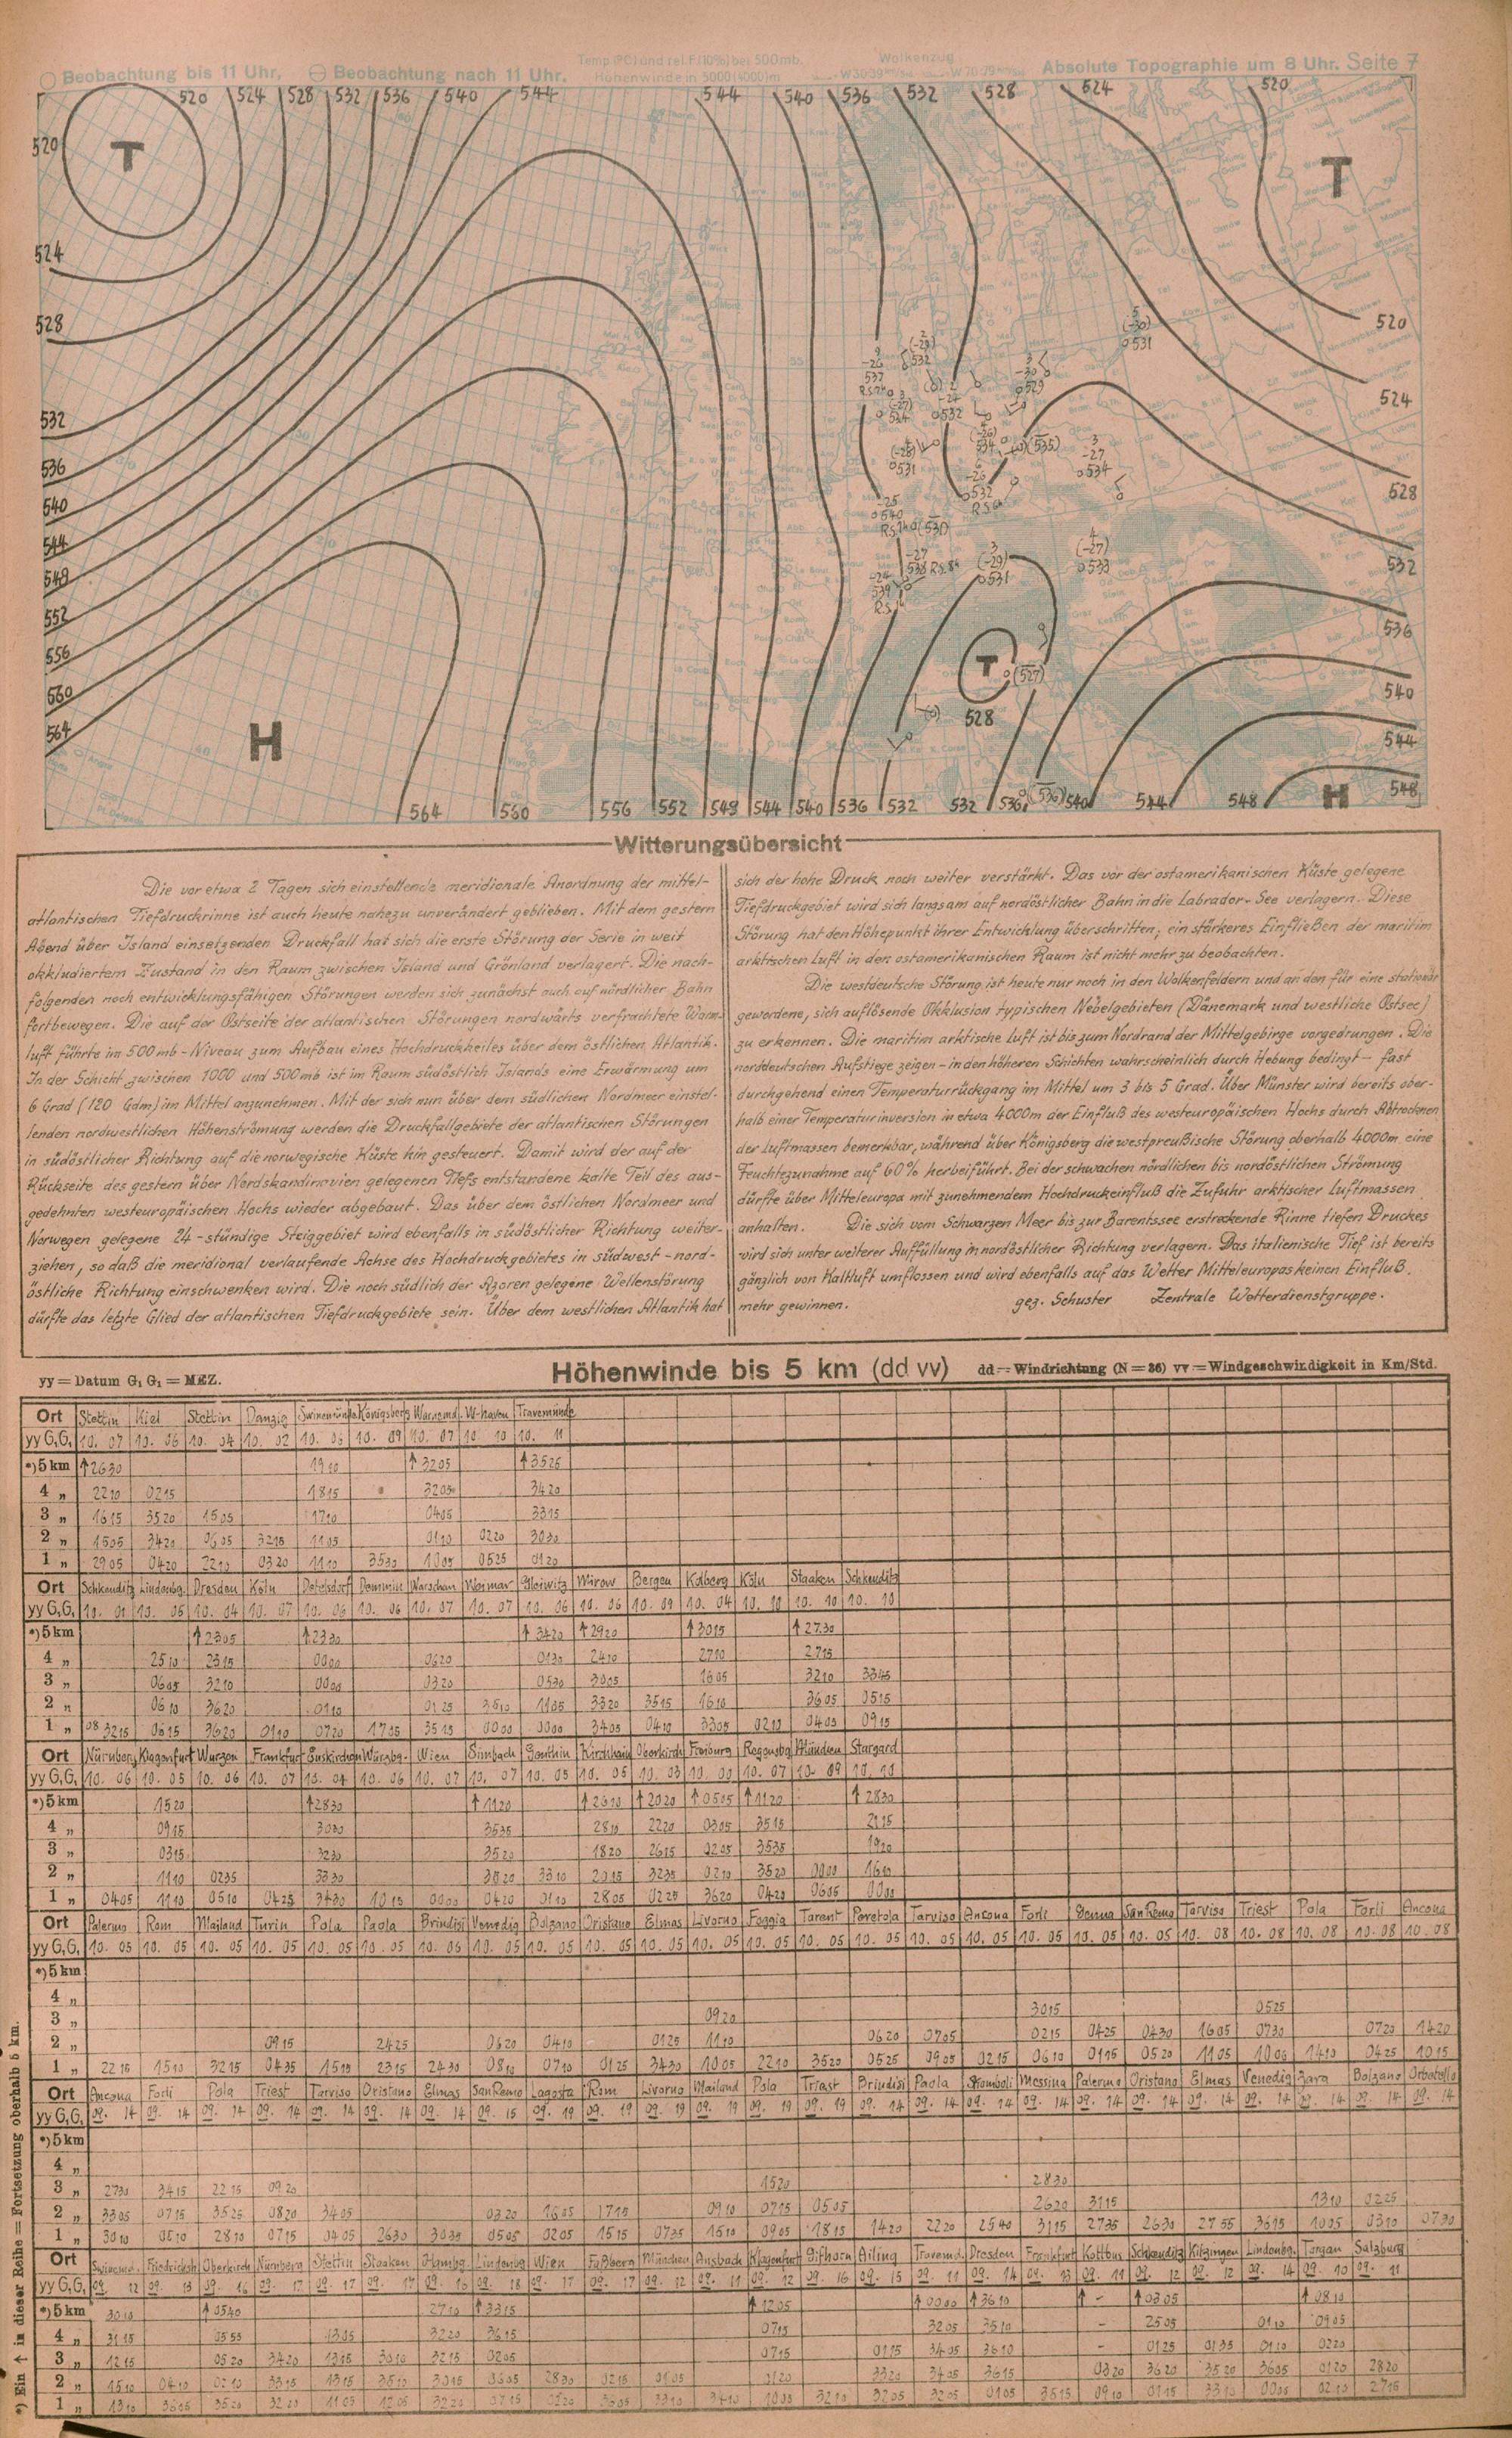 Beobachtung bis 11 Uhr, Beobachtung nach 11 Uhr.
Temp.(°C) und rel.F.(10%) bei 500 mb.
Höhenwinde in 5000 (4000) m
Wolkenzug
Absolute Topographie um 8 Uhr. Seite 7
520 524 528 532 536 540 544 544 540 536 532 528 524 520
520
T
T
524
528
520
532
524
536
540
528
544
548
532
552
536
556
T
560
540
528
564
H
544
548
H
564 560 556 552 548 544 540 536 532 532 536 540 544 548
Witterungsübersicht
Die vor etwa 2 Tagen sich einstellende meridionale Anordnung der mittel-
atlantischen Tiefdruckrinne ist auch heute nahezu unverändert geblieben. Mit dem gestern
Abend über Island einsetzenden Druckfall hat sich die erste Störung der Serie in weit
okkludiertem Zustand in den Raum zwischen Island und Grönland verlagert. Die nach-
folgenden noch entwicklungsfähigen Störungen werden sich zunächst auch auf nördlicher Bahn
fortbewegen. Die auf der Ostseite der atlantischen Störungen nordwärts verfrachtete Warm-
luft führte im 500 mb-Niveau zum Aufbau eines Hochdruckkeiles über dem östlichen Atlantik.
In der Schicht zwischen 1000 und 500 mb ist im Raum südöstlich Islands eine Erwärmung um
6 Grad (120 Gdm) im Mittel anzunehmen. Mit der sich nun über dem südlichen Nordmeer einstel-
lenden nordwestlichen Höhenströmung werden die Druckfallgebiete der atlantischen Störungen
in südöstlicher Richtung auf die norwegische Küste hin gesteuert. Damit wird der auf der
Rückseite des gestern über Nordskandinavien gelegenen Tiefs entstandene kalte Teil des aus-
gedehnten westeuropäischen Hochs wieder abgebaut. Das über dem östlichen Nordmeer und
Norwegen gelegene 24-stündige Steiggebiet wird ebenfalls in südöstlicher Richtung weiter-
ziehen, so daß die meridional verlaufende Achse des Hochdruckgebietes in südwest-nord-
östliche Richtung einschwenken wird. Die noch südlich der Azoren gelegene Wellenstörung
dürfte das letzte Glied der atlantischen Tiefdruckgebiete sein. Über dem westlichen Atlantik hat
sich der hohe Druck noch weiter verstärkt. Das vor der ostamerikanischen Küste gelegene
Tiefdruckgebiet wird sich langsam auf nordöstlicher Bahn in die Labrador-See verlagern. Diese
Störung hat den Höhepunkt ihrer Entwicklung überschritten; ein stärkeres Einfließen der maritim
arktischen Luft in den ostamerikanischen Raum ist nicht mehr zu beobachten.
Die westdeutsche Störung ist heute nur noch in den Wolkenfeldern und an den für eine stationär
gewordene, sich auflösende Okklusion typischen Nebelgebieten (Dänemark und westliche Ostsee)
zu erkennen. Die maritim arktische Luft ist bis zum Nordrand der Mittelgebirge vorgedrungen. Die
norddeutschen Aufstiege zeigen - in den höheren Schichten wahrscheinlich durch Hebung bedingt - fast
durchgehend einen Temperaturrückgang im Mittel um 3 bis 5 Grad. Über Münster wird bereits ober-
halb einer Temperaturinversion in etwa 4000m der Einfluß des westeuropäischen Hochs durch Abtrocknen
der Luftmassen bemerkbar, während über Königsberg die westpreußische Störung oberhalb 4000m eine
Feuchtezunahme auf 60% herbeiführt. Bei der schwachen nördlichen bis nordöstlichen Strömung
dürfte über Mitteleuropa mit zunehmendem Hochdruckeinfluß die Zufuhr arktischer Luftmassen
anhalten. Die sich vom Schwarzen Meer bis zur Barentssee erstreckende Rinne tiefen Druckes
wird sich unter weiterer Auffüllung in nordöstlicher Richtung verlagern. Das italienische Tief ist bereits
gänzlich von Kaltluft umflossen und wird ebenfalls auf das Wetter Mitteleuropas keinen Einfluß
mehr gewinnen. gez. Schuster Zentrale Wetterdienstgruppe.
yy = Datum G₁ G₁ = MEZ.
Höhenwinde bis 5 km (dd vv) dd = Windrichtung (N = 36) vv = Windgeschwindigkeit in Km/Std.
Ort Stettin Kiel Stettin Danzig Swinemünde Königsberg Warnemd. W-haven Travemünde
yy G₁G₁ 10. 07 10. 06 10. 04 10. 02 10. 06 10. 09 10. 07 10. 10 10. 11
*) 5 km ↑2630 1910 ↑3205 ↑3525
4 „ 2210 0215 1815 3205 3420
3 „ 1615 3520 1505 1710 0405 3315
2 „ 1505 3420 0605 3215 1105 0110 0220 3030
1 „ 2905 0420 2210 0320 1110 3530 1005 0525 0120
Ort Schkeuditz Lindenbg. Dresden Köln Detelsdorf Demmin Warschau Weimar Gleiwitz Würow Bergen Kolberg Köln Staaken Schkeuditz
yy G₁G₁ 10. 01 10. 05 10. 04 10. 07 10. 06 10. 06 10. 07 10. 07 10. 06 10. 06 10. 09 10. 04 10. 10 10. 10 10. 10
*) 5 km ↑2305 ↑2330 ↑3420 ↑2920 ↑3015 ↑2730
4 „ 2510 2315 0000 0620 0130 2410 2710 2715
3 „ 0605 3210 0000 0320 0530 3005 1605 3210 3345
2 „ 0610 3620 0110 0125 3510 1105 3320 3515 1610 3605 0515
1 „ 08 3215 0615 3620 0110 0720 1705 3515 0000 0000 3405 0410 3305 0210 0405 0915
Ort Nürnberg Klagenfurt Wurzen Frankfurt Euskirchen Würzbg. Wien Simbach Genthin Kirchhain Oberkirch Freiburg Regensbg. München Stargard
yy G₁G₁ 10. 06 10. 05 10. 06 10. 07 10. 04 10. 06 10. 07 10. 07 10. 05 10. 05 10. 03 10. 09 10. 07 10. 09 10. 10
*) 5 km 1520 ↑2830 ↑1120 ↑2610 ↑2020 ↑0505 ↑1120 ↑2830
4 „ 0915 3030 3535 2810 2220 0305 3515 2115
3 „ 0315 3230 3520 1820 2615 0205 3535 1920
2 „ 1110 0235 3330 3520 3310 2015 3235 0210 3520 0000 1610
1 „ 0405 1110 0510 0425 3430 1015 0000 0420 0110 2805 0225 3620 0420 0605 0000
Ort Palermo Rom Mailand Turin Pola Paola Brindisi Venedig Bolzano Oristano Elmas Livorno Foggia Tarent Peretola Tarviso Ancona Forli Genua San Remo Tarviso Triest Pola Forli Ancona
yy G₁G₁ 10. 05 10. 05 10. 05 10. 05 10. 05 10. 05 10. 06 10. 05 10. 05 10. 05 10. 05 10. 05 10. 05 10. 05 10. 05 10. 05 10. 05 10. 05 10. 05 10. 05 10. 08 10. 08 10. 08 10. 08 10. 08
*) 5 km
4 „
3 „ 0920 3015 0525
2 „ 0915 2425 0620 0410 0125 1110 0620 0705 0215 0425 0430 1605 0730 0720 1420
1 „ 2215 1510 3215 0435 1510 2315 2430 0810 0710 0125 3430 1005 2210 3520 0525 0905 0215 0610 0115 0520 1105 1006 1410 0425 1015
Ort Ancona Forli Pola Triest Tarviso Oristano Elmas San Remo Lagosta Rom Livorno Mailand Pola Triest Brindisi Paola Stromboli Messina Palermo Oristano Elmas Venedig Zara Bolzano Orbetello
yy G₁G₁ 09. 14 09. 14 09. 14 09. 14 09. 14 09. 14 09. 14 09. 15 09. 19 09. 19 09. 19 09. 19 09. 19 09. 19 09. 14 09. 14 09. 14 09. 14 09. 14 09. 14 09. 14 09. 14 09. 14 09. 14 09. 14
*) 5 km
4 „
3 „ 2730 3415 2215 0920 1520 2830
2 „ 3305 0715 3525 0820 3405 0320 1605 1715 0910 0715 0505 2620 3115 1310 0225
1 „ 3010 0510 2810 0715 0405 2630 3035 0505 0205 1515 0735 1510 0905 1815 1420 2220 2540 3115 2735 2630 2755 3615 1005 0310 0730
Ort Swinemd. Friedrichsh. Oberkirch Nürnberg Stettin Staaken Hambg. Lindenbg. Wien Fußberg München Ansbach Klagenfurt Gifhorn Ailing Travemd. Dresden Frankfurt Kottbus Schkeuditz Kitzingen Lindenbg. Torgau Salzburg
yy G₁G₁ 09. 12 09. 13 09. 16 09. 17 09. 17 09. 17 09. 18 09. 18 09. 17 09. 17 09. 12 09. 11 09. 12 09. 16 09. 15 09. 11 09. 14 09. 13 09. 11 09. 12 09. 12 09. 14 09. 10 09. 11
*) 5 km 3010 ↑0540 2710 ↑3315 ↑1205 ↑0000 ↑3610 ↑ - ↑0305 ↑0810
4 „ 3115 0555 1305 3220 3615 0715 3205 3510 - 2505 0110 0905
3 „ 1215 0520 3420 1315 3010 3215 0205 0715 0115 3405 3610 - 0125 0135 0110 0220
2 „ 1510 0410 0210 3315 1315 3510 3015 0605 2830 0215 0105 0120 3320 3405 3615 0320 3620 3520 3605 0120 2820
1 „ 1310 3605 3520 3220 1105 1205 3220 0715 0220 3605 3310 3410 1005 3210 3205 3205 0105 3515 0910 0115 3310 0005 0210 2715
*) Ein ↑ in dieser Reihe = Fortsetzung oberhalb 5 km.